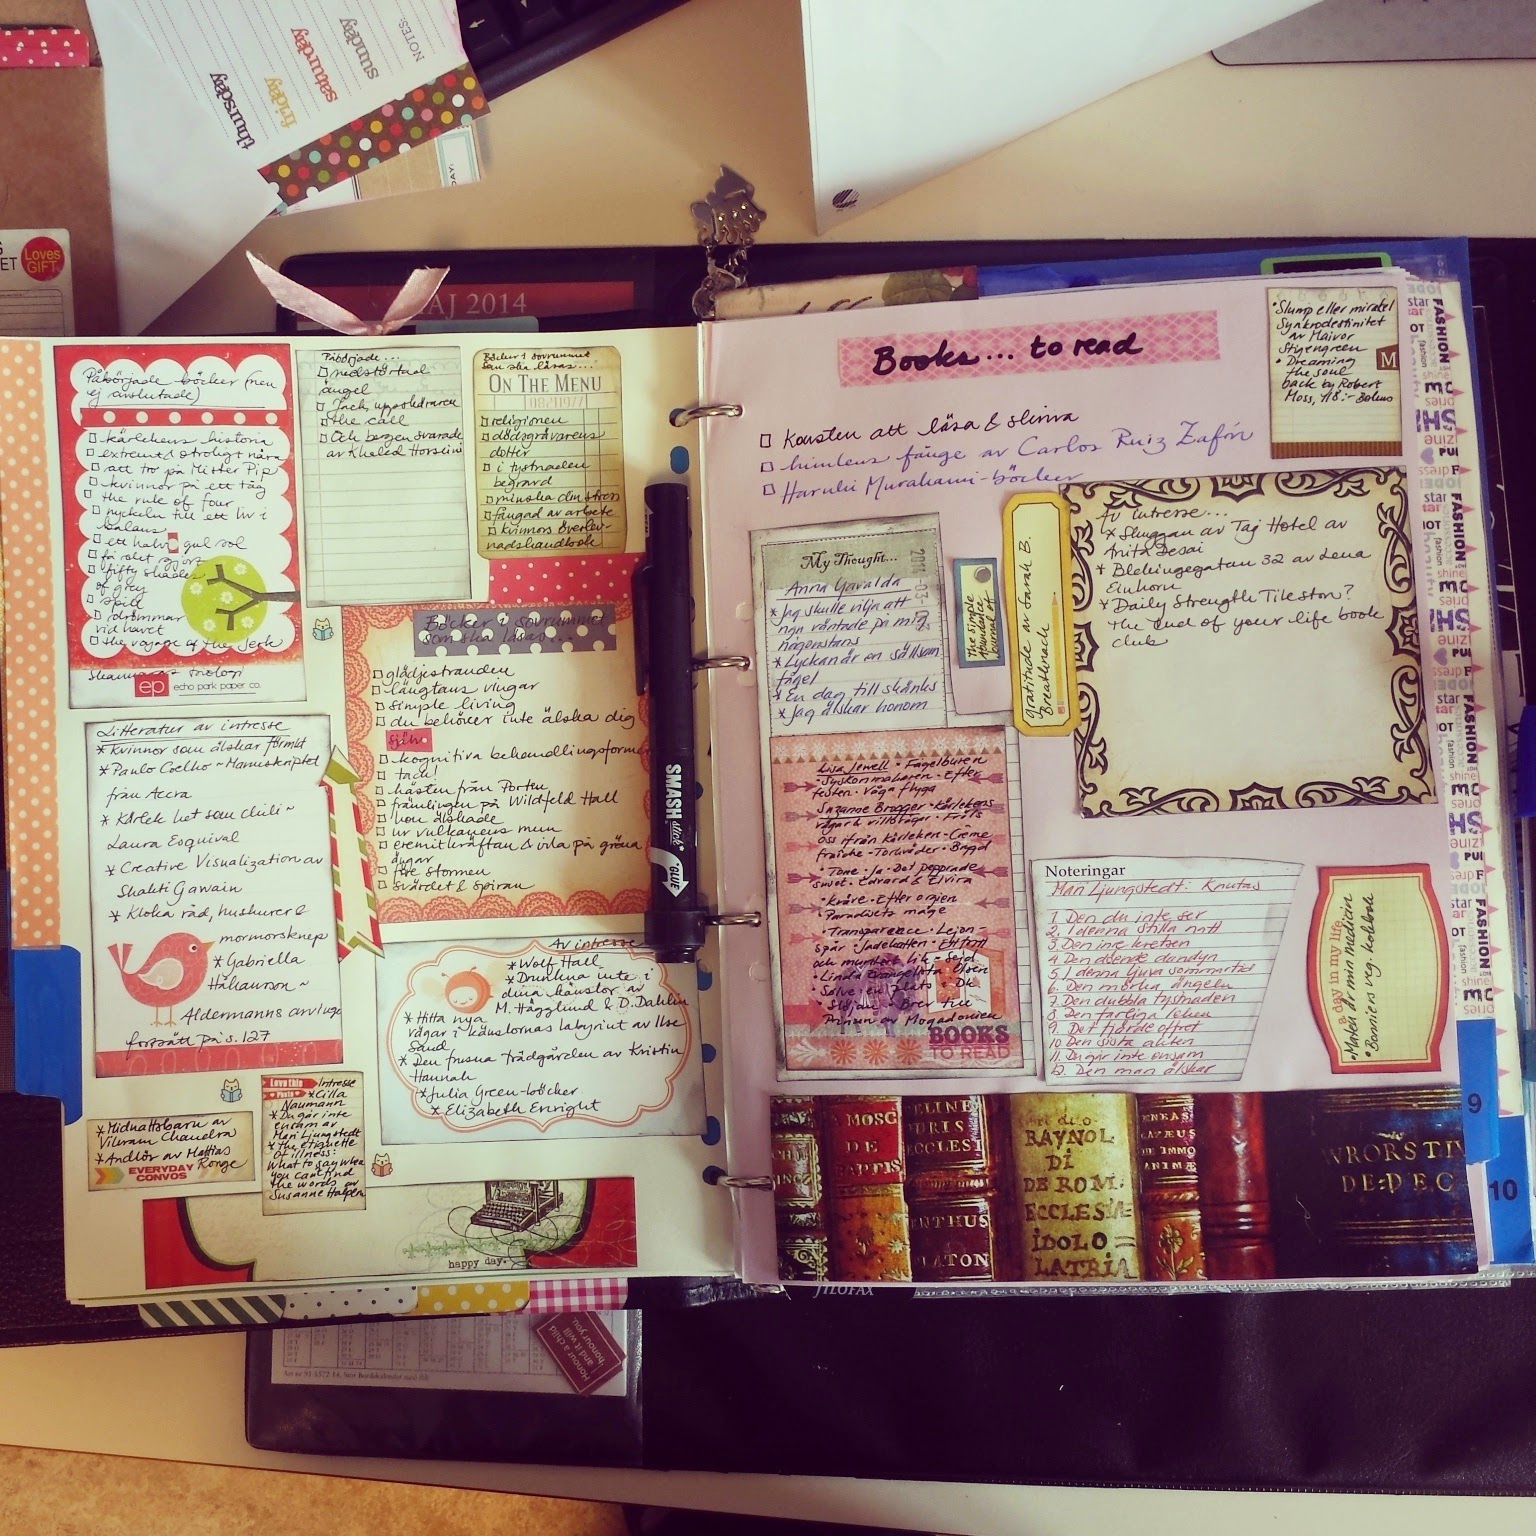 NOTES:
sunday
saturday
friday
thursday
Loves
GIFT
MAJ 2014
Påbörjade böcker (men
ej avslutade)
kärlekens historia
extremt otroligt nära
att tro på Mister Pip
kvinnor på ett tåg
the rule of four
nyckeln till ett liv i
balans
ett halvt gul sol
fifty shades
of grey
spill
drömmar
vid havet
the voyage of the Jerk
ep echo park paper co.
Påbörjade...
nedstörtad
ängel
Jack uppskäraren
the call
Och bergen svarade
av Khaled Hosseini
Böcker i sovrummet
som ska läsas...
ON THE MENU
religionen
dödgrävarens
dotter
i tystnaden
begravd
minska din stress
fångad av arbete
kvinnors överlev-
nadshandbook
Böcker i sovrummet
som ska läsas...
glädjestranden
längtans vingar
simple living
du behöver inte älska dig
själv
kognitiva behandlingsformer
tack!
hästen från Porten
främlingen på Wildfeld Hall
hon älskade
ur vulkanens mun
eremitkräftan & vila på gröna
ängar
före stormen
Svärdet & spiran
Litteratur av intresse
* Kvinnor som älskar för mkt
* Paulo Coelho ~ Manuskriptet
från Accra
* Kärlek het som chili ~
Laura Esquival
* Creative Visualization av
Shakti Gawain
* Kloka råd, huskurer &
mormorsknep
* Gabriella
Håkansson ~
Aldermanns arvinge
fortsätt på s. 127
Av intresse
* Wolf Hall
* Drunkna inte i
dina känslor av
M. Hägglund & D. Dahlin
* Hitta nya
vägar i känslornas labyrint av Ilse
Sand
* Den frusna trädgården av Kristin
Hannah
* Julia Green-böcker
* Elizabeth Enright
* Midnattsbarn av
Vikram Chandra
* Andlös av Mattias
Ronge
EVERYDAY
CONVOS
Love this
Photo
Intresse
* Cilla
Naumann
* Du går inte
ensam av
Mari Ljungstedt
* the etiquette
of illness:
What to say when
you can't find
the words av
Susanne Halpern
happy day.
SMASH stick
GLUE
Books... to read
Konsten att läsa & skriva
himlens fånge av Carlos Ruiz Zafón
Haruki Murakami-böcker
• Slump eller mirakel
Synkrodestinitet
av Maivor
Stigengreen
• Dreaming
the soul
back by Robert
Moss, 118:- Bokus
M
My Thought...
Anna Gavalda
* Jag skulle vilja att
nån väntade på mig
någonstans
* Lyckan är en sällsam
fågel
* En dag till skänks
* Jag älskar honom
The Simple
Abundance
Journal of
gratitude av Sarah B.
Breathnach
Av intresse...
* Skuggan av Taj Hotel av
Anita Desai
* Blekingegatan 32 av Lena
Einhorn
* Daily Strength Tileston?
the end of your life book
club
Lisa Jewell • Fågelburen
• Syskonmakaren • Efter
festen • Våga flyga
Suzanne Brøgger • Kärlekens
vägar & villovägar • Fräls
oss ifrån kärleken • Crème
fraîche • Tortvåder • Brygd
• Tone • Ja • Det pepprade
suset • Edvard & Elvira
• Kråre • Efter orgien
• Paradisets mage
• Transparence • Lejon-
spår • Jadekatten • Ett fritt
och muntert lik • Sejd
• Linda Evangelista Olsen
• Sølve
• Slöjan • Brev till
Prinsen av Mogadonien
BOOKS
TO READ
Noteringar
Mari Ljungstedt: Knutas
1. Den du inte ser
2. I denna stilla natt
3. Den inre kretsen
4. Den döende dandyn
5. I denna ljuva sommartid
6. Den mörka ängeln
7. Den dubbla tystnaden
8. Den farliga leken
9. Det fjärde offret
10 Den sista akten
11. Du går inte ensam
12. Den man älskar
a day in my life
• Maten är min medicin
• Bonniers veg. kokbok
FASHION
star
shine
MOSC
DE
BAPTIS
RAYNOL
DI
DE ROM.
ECCLESIÆ
IDOLO=
LATRIA
ENTHUS
PLATON
ENEAS
DE IMMO
ANIMÆ
9
10
FILOFAX
Honour a child
and it will
honour you.